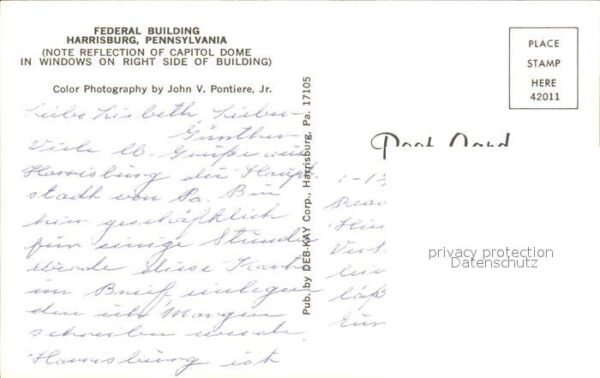 FEDERAL BUILDING
HARRISBURG, PENNSYLVANIA
(NOTE REFLECTION OF CAPITOL DOME
IN WINDOWS ON RIGHT SIDE OF BUILDING)
Color Photography by John V. Pontiere, Jr.
Liebe Lisbeth, Lieber
Günther
Viele lb. Grüße aus
Harrisburg die Haupt
stadt von Pa. Bin
hier geschäftlich
für einige Stunden
werde diese Karte
im Brief einlegen
den ich Morgen
schreiben werde
Harrisburg ist
Pub. by DEB-KAY Corp., Harrisburg, Pa. 17105
Post Card
PLACE
STAMP
HERE
42011
privacy protection
Datenschutz